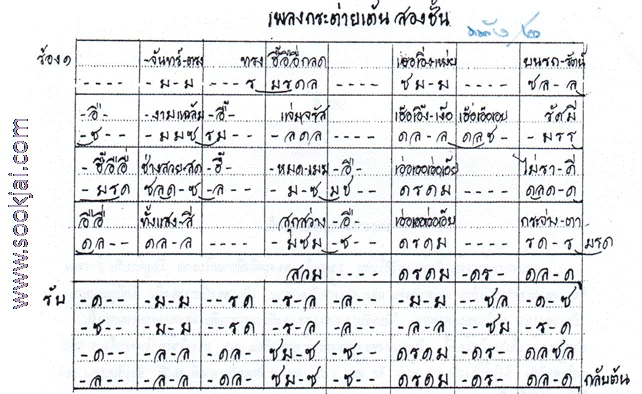 เพลงกระต่ายเต้น สองชั้น
ร้อง๑ -จันทร์-ตรง ทรง ฮื้อฮือฮือกลด เฮอเอิงเงย บนรถ-รัตน์
---- -ม-ม ---ร มรดล ---- ซม-ม ---- ซล-ล
-ฮื- -งามเฉลิม -ฮื้- แจ่มจรัส เฮ้อเอิ้ง-เง้อ เฮ้อเอ้อเอย รัศมี
-ซ-- -มมซ รม-- -ลดล ---- ดล-ล ดลซ- -มรร
-ฮื้อฮือฮื ช่างสวยสด -ฮื้- -หมดเมฆ -ฮื- เอ่อเออเอ่อเอ๊ย ไม่ราคี
-มรด ซลด-ซ -ล-- -ม-ซ มซ-- ดรดม ---- ดลด-ด
ฮือฮื ทั้งแสง-สี สุกสว่าง -ฮื- เอ่อเออเอ่อเอ๊ย กระจ่าง-ตา
ดล-- ดล-ล ---- -มซม -ซ-- ดรดม ---- รด-ร มรด
สวม ---- ดรดม -ดร- ดล-ด
รับ -ด-- -ม-ม --รด -ร-ล -ล-- -ม-ม --ซล -ด-ซ
-ซ-- -ม-ม --รด -ร-ล -ล-- -ล-ล --ซม -ร-ด
-ด-- -ล-ล -ดล- ซม-ซ -ซ-- ดรดม -ดร- ดลซล
-ล-- -ล-ล -ดล- ซม-ซ -ซ-- ดรดม -ดร- ดล-ด กลับต้น
www.sookjai.com